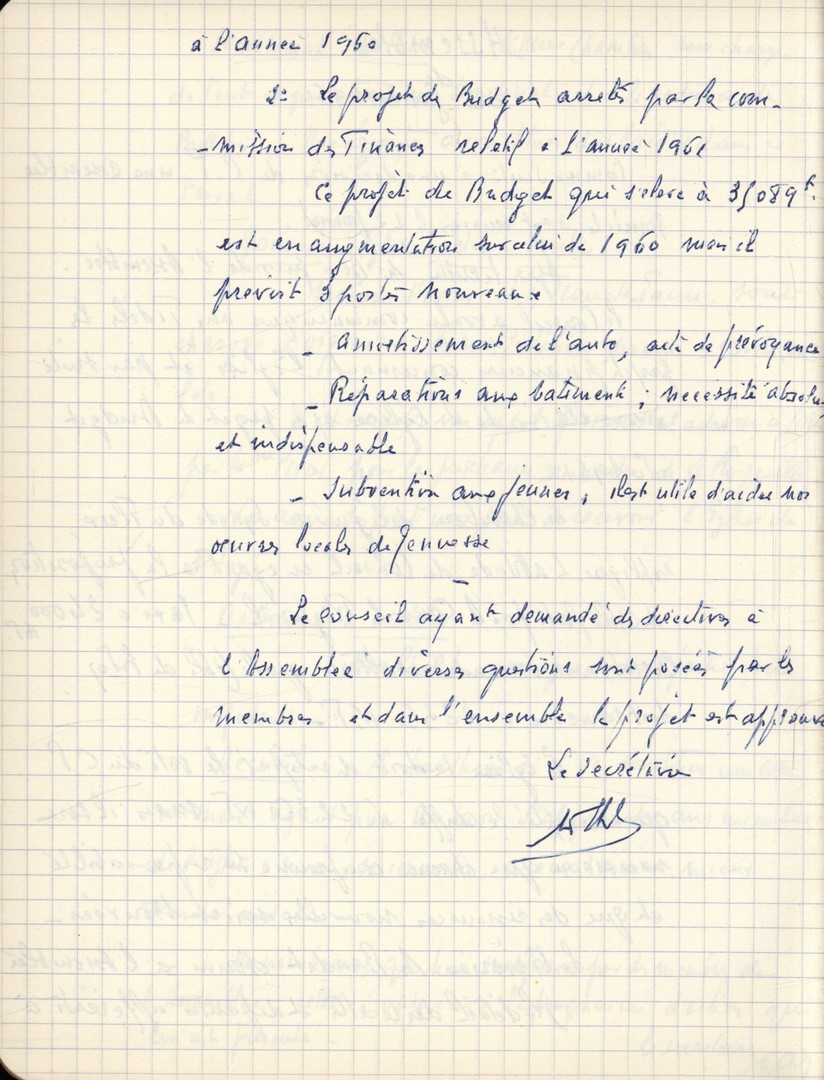 à l'année 1960
2° Le projet de Budget arrêté par la com-
-mission des Finances relatif à l'année 1961
Ce projet de Budget qui s'élève à 35089 f.
est en augmentation sur celui de 1960 mais il
prévoit 3 postes nouveaux
- Amortissement de l'auto, acte de prévoyance
- Réparations aux batiments ; nécessité absolue
et indispensable
- Subvention aux jeunes ; il est utile d'aider nos
oeuvres locales de Jeunesse
Le Conseil ayant demandé des directives à
l'Assemblée diverses questions sont posées par les
membres et dans l'ensemble le projet est approuvé
Le Secrétaire